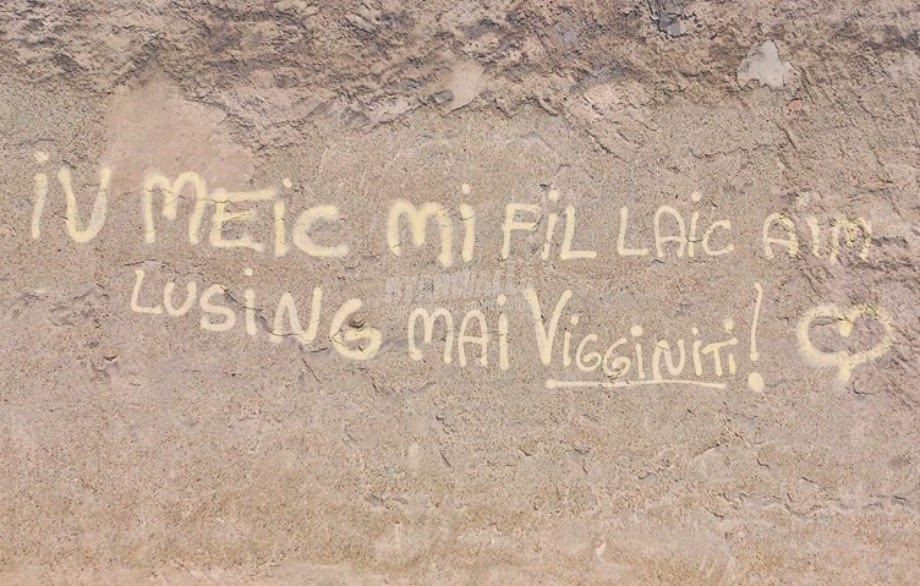 iU MEiC Mi FiL LAiC AIM
LUSiNG MAi ViGGiNiTi!